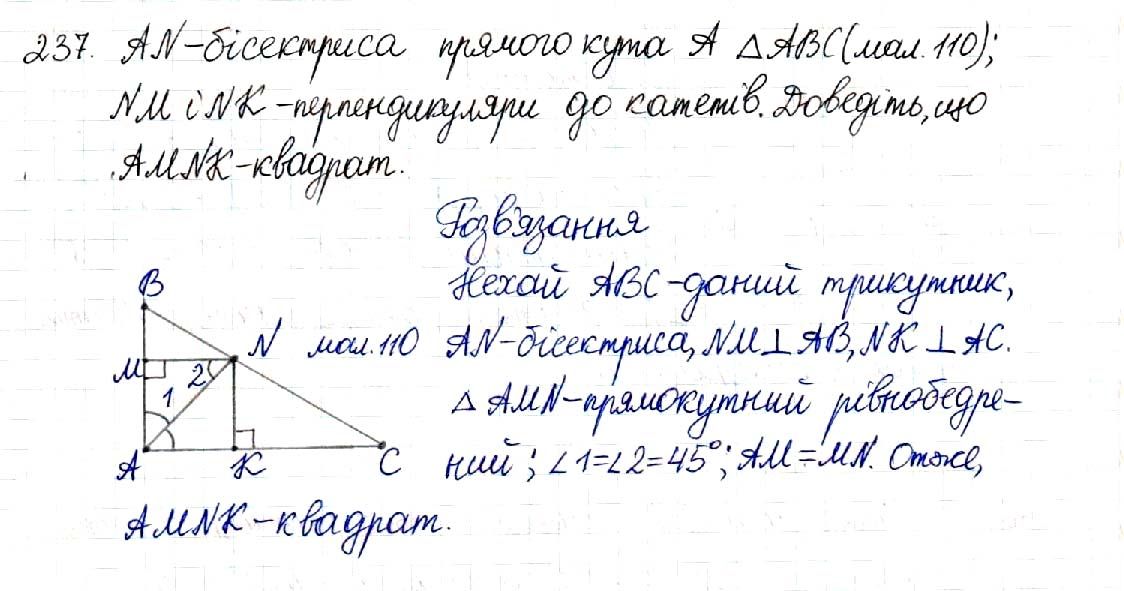 237. AN-бісектриса прямого кута A △ABC (мал. 110);
NM і NK-перпендикуляри до катетів. Доведіть, що
AMNK-квадрат.
Розв'язання
Нехай ABC-даний трикутник,
AN-бісектриса, NM⊥AB, NK⊥AC.
△AMN-прямокутний рівнобедре-
ний; ∠1=∠2=45°; AM=MN. Отже,
AMNK-квадрат.
B
N мал. 110
M 2
1
A K C